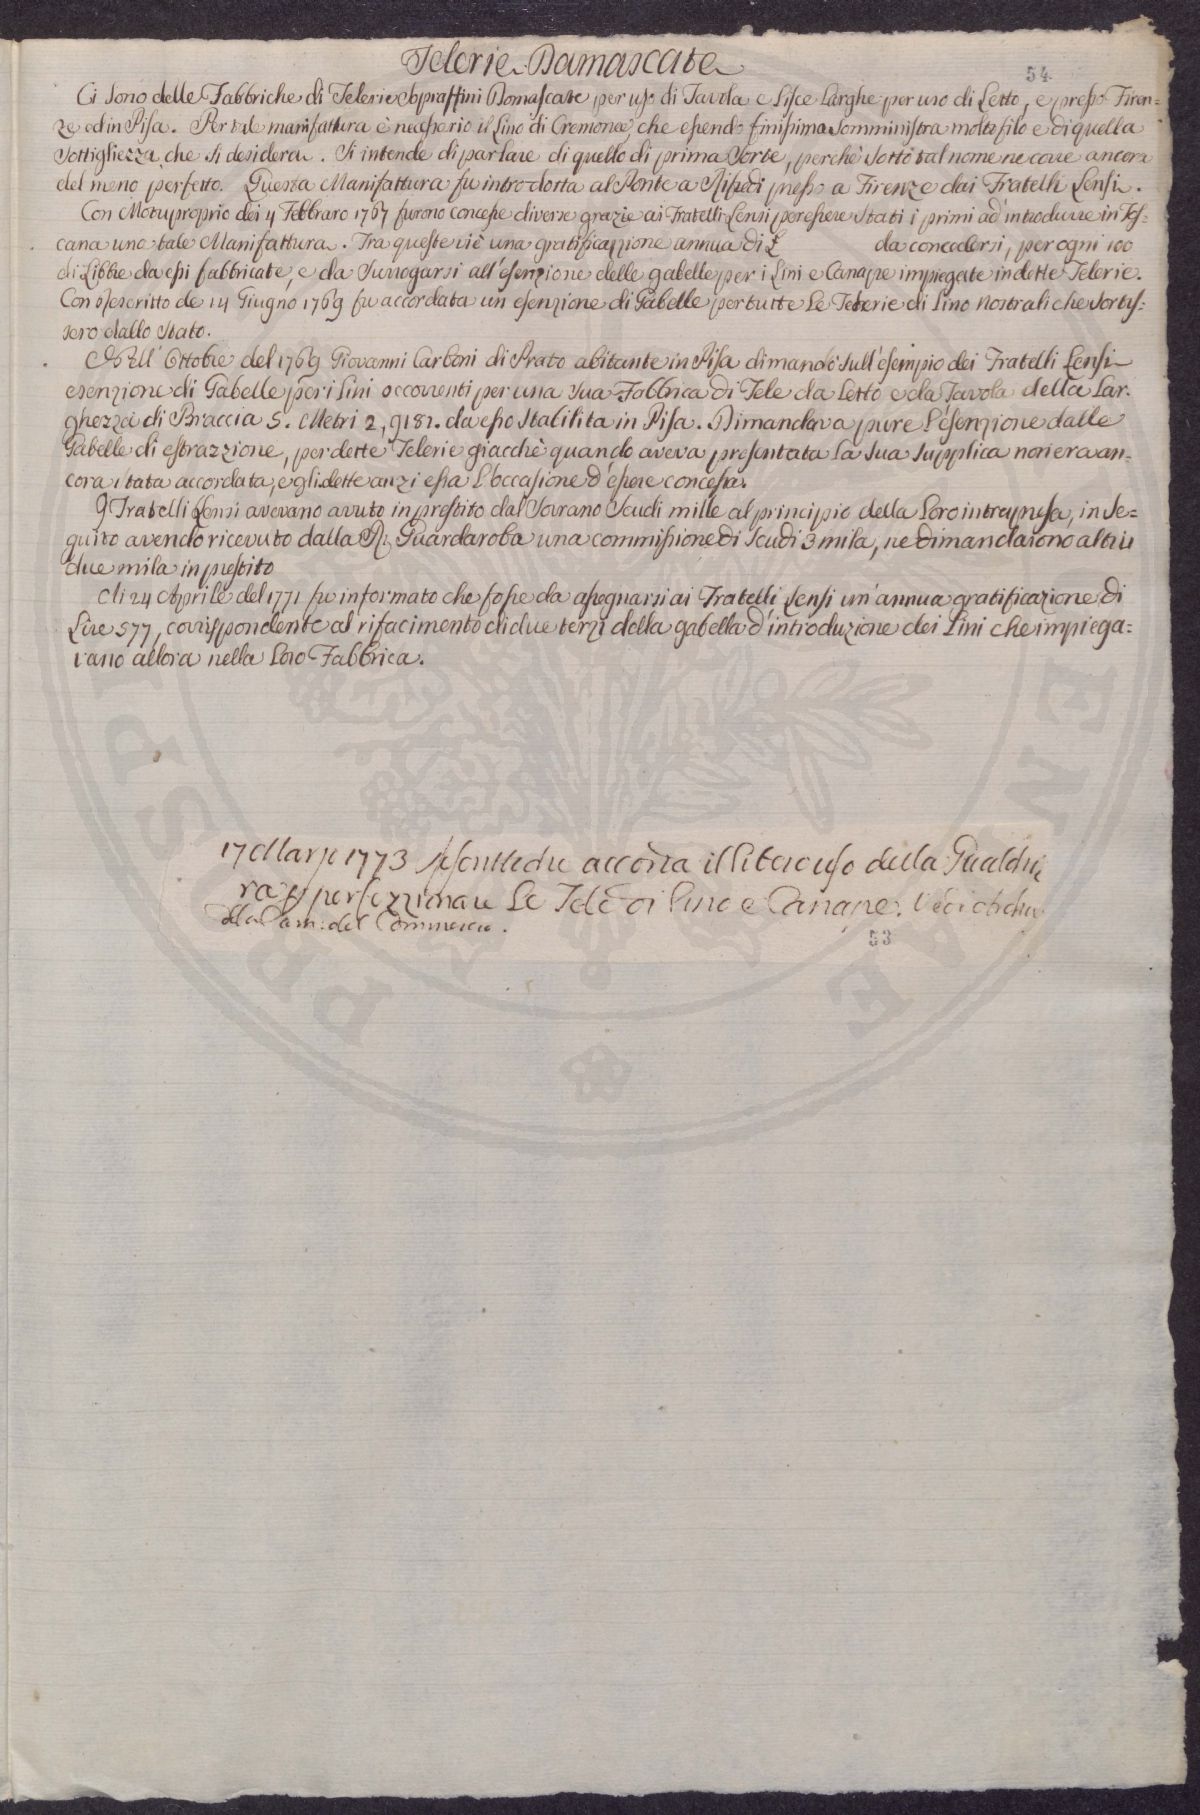 Telerie Damascate
54
Ci sono delle Fabbriche di Telerie Sopraffini Damascate per uso di Tavola e Lisce Larghe per uso di Letto, e presso Firen=
ze ed in Pisa. Per tale manifattura è necessario il Lino di Cremona, che essendo finissimo somministra molto filo e di quella
sottigliezza che si desidera. Si intende di parlare di quello di prima Sorte, perchè sotto tal nome ne corre ancora
del meno perfetto. Questa Manifattura fu introdotta al Ponte a Rifredi presso a Firenze dai Fratelli Lensi.
Con Motuproprio dei 4 Febbraro 1767 furono concesse diverse grazie ai Fratelli Lensi per essere stati i primi ad introdurre in Tos=
cana una tale Manifattura. Tra queste vi è una gratificazzione annua di £ da concedersi, per ogni 100
di Libbre da essi fabbricate, e da surrogarsi all'esenzione delle gabelle per i Lini e Canape impiegate in dette Telerie.
Con Rescritto de 14 Giugno 1769 fu accordata un esenzione di Gabelle per tutte Le Telerie di Lino Nostrali che sortis=
sero dallo Stato.
Nell' Ottobre del 1769 Giovanni Carboni di Prato abitante in Pisa dimandò sull'esempio dei Fratelli Lensi
esenzione di Gabelle per i Lini occorrenti per una sua Fabbrica di Tele da Letto e da Tavola della Lar=
ghezza di Braccia 5. Metri 2,9181. da esso Stabilita in Pisa. Dimandava pure l'esenzione dalle
Gabelle di estrazzione, per dette Telerie giacchè quando aveva presentata la sua supplica non era an=
cora stata accordata, e gli dette anzi essa L'occasione d'essere concessa.
I Fratelli Lensi avevano avuto in prestito dal Sovrano Scudi mille al principio della Loro intrapresa, in se=
guito avendo ricevuto dalla R. Guardaroba una commissione di Scudi 3 mila, ne dimandarono altri
due mila in prestito
Ai 24 Aprile del 1771 fu informato che fosse da assegnarsi ai Fratelli Lensi un'annua gratificazione di
Lire 577, corrispondente al rifacimento di due terzi della gabella d'introduzione dei Lini che impiega=
vano allora nella Loro Fabbrica.
17 Marzo 1773 accorda il libero uso della Gualchie
ra per perfezzionare Le Tele di Lino e Canape. Vedi
della Cam: del Commercio.
53